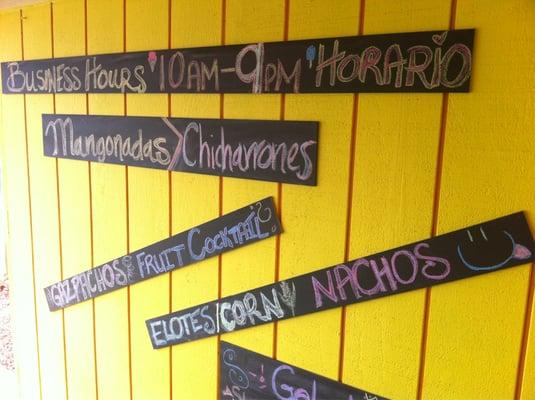 Business Hours 10AM-9PM HORARIO
Mangonadas Chicharrones
GAZPACHOS FRUIT COCKTAIL
ELOTES/CORN NACHOS